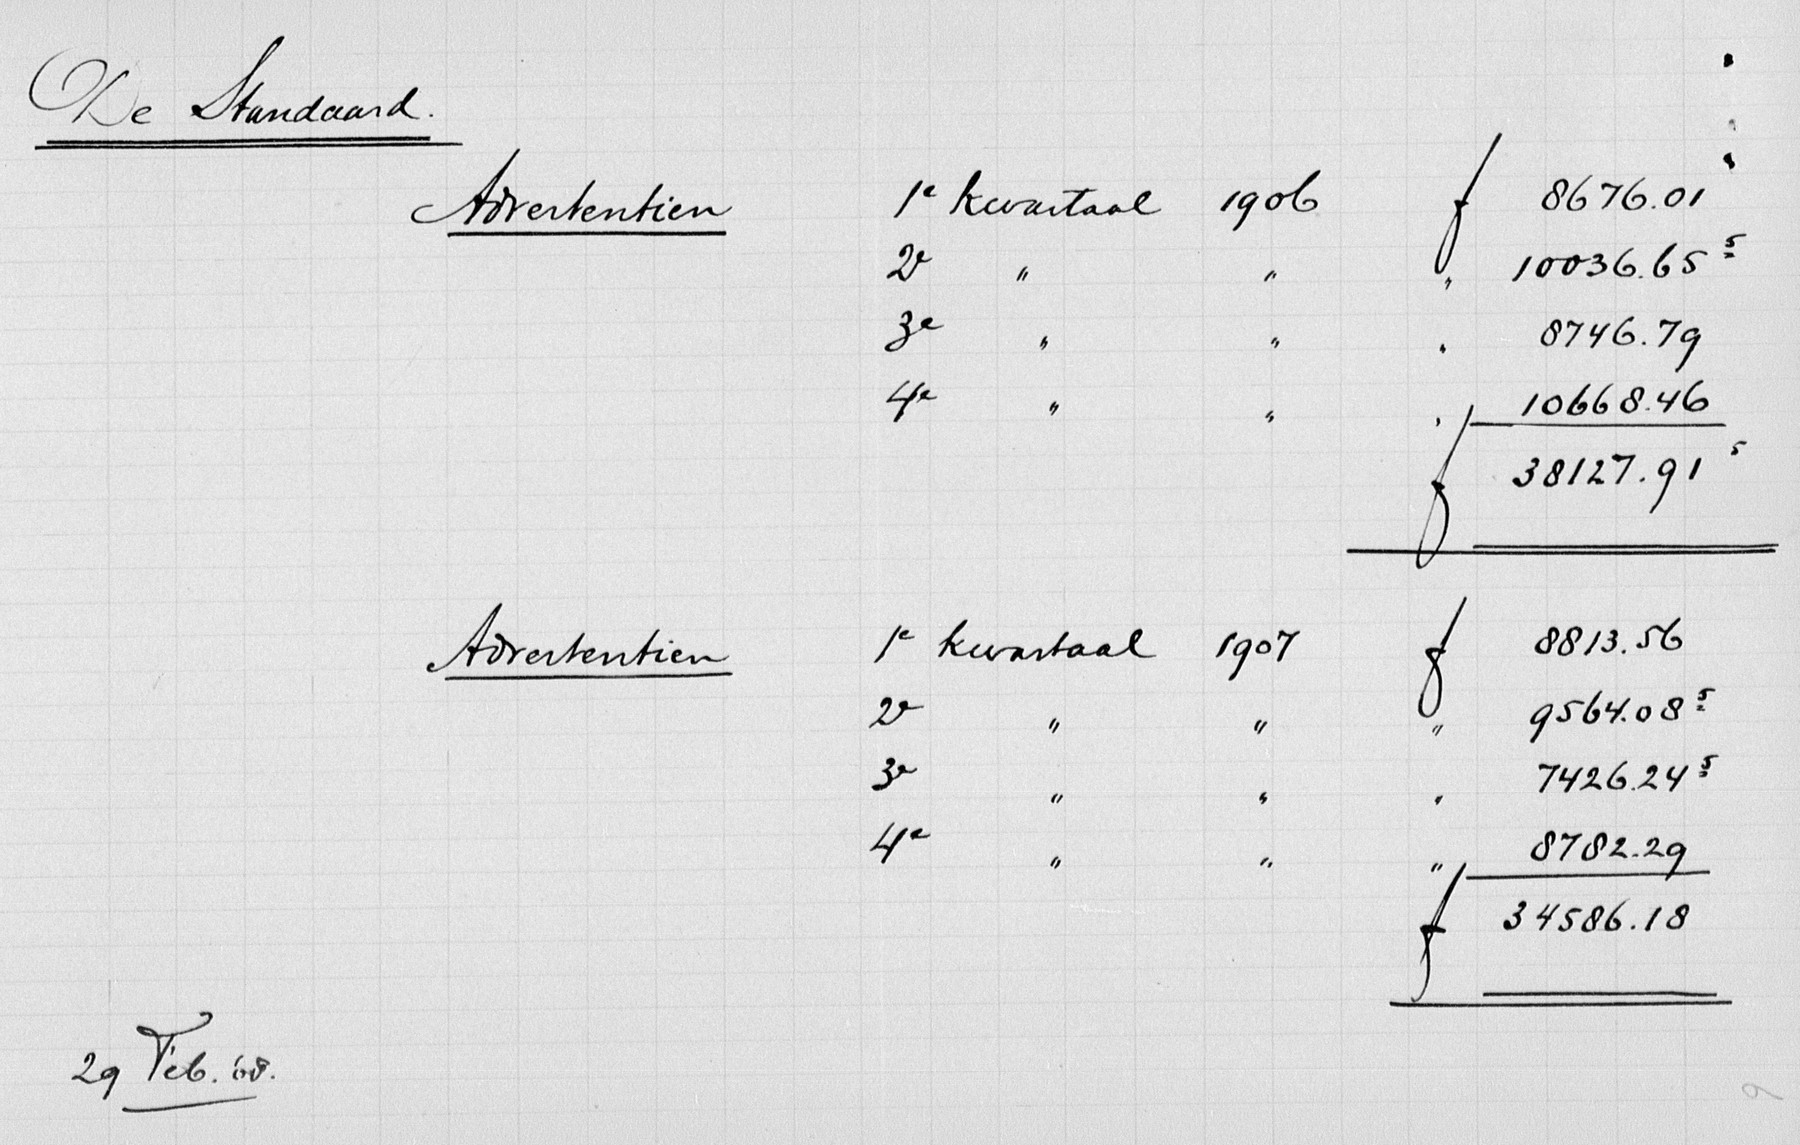 De Standaard.
Advertentien 1e kwartaal 1906 f 8676.01
2e " " " 10036.65⁵
3e " " " 8746.79
4e " " " 10668.46
f 38127.91⁵
Advertentien 1e kwartaal 1907 f 8813.56
2e " " " 9564.08⁵
3e " " " 7426.24⁵
4e " " " 8782.29
f 34586.18
29 Feb. '08.
9